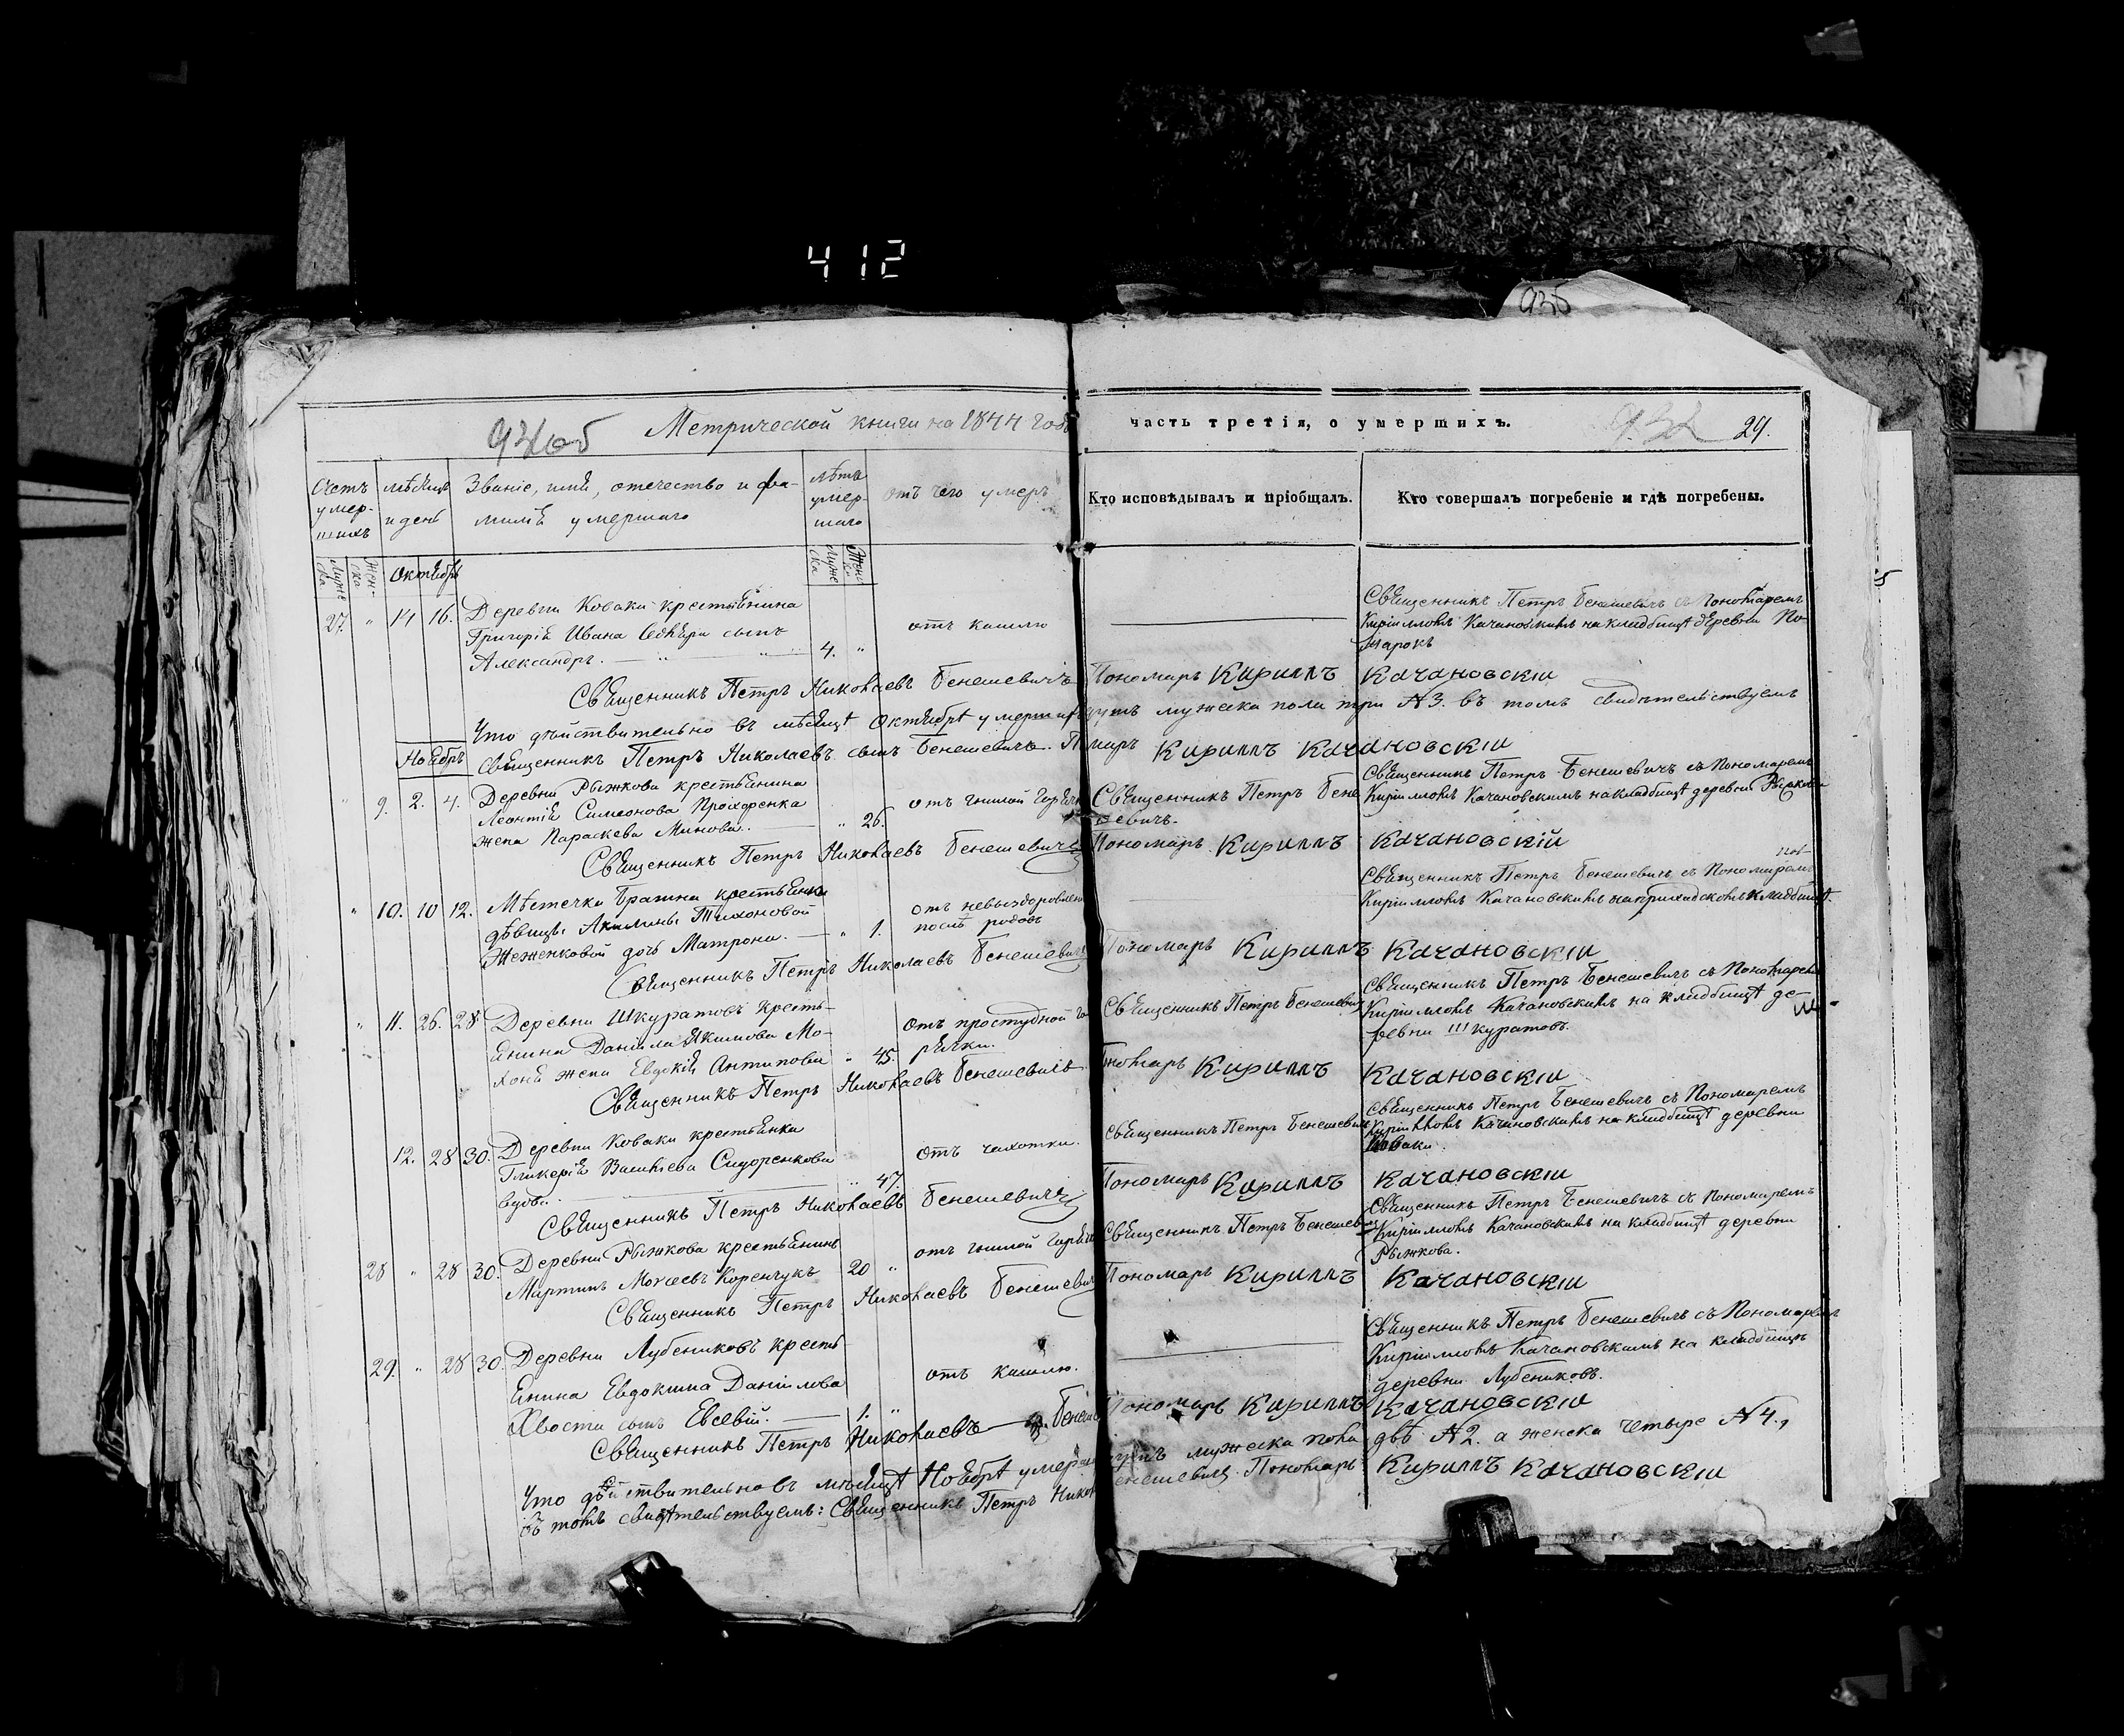 412
93об
Метрической книги на 1844 годъ часть третія, о умершихъ. 29.
Счетъ умер-шихъ
мѣсяцъ и день
Званіе, имя, отечество и фа-
милія умершаго
лѣта умер-шаго
отъ чего умеръ
Кто исповѣдывалъ и пріобщалъ.
Кто совершалъ погребеніе и гдѣ погребены.
Муже ска
Жен-ска
Октябрь
Муже ска
Женс ка
27. " 14 16. Деревни Коваки крестьянина
Григорія Ивана сынъ
Александръ. — " " 4. "
отъ кашлю
Священникъ Петръ Бенешевичъ съ Пономаремъ
Кирилломъ Качановскимъ на кладбищѣ деревни По-
Священникъ Петръ Николаевъ Бенешевичъ Пономарь Кириллъ Качановскій
Что дѣйствительно въ мѣсяцѣ Октябрѣ умершихъ мужеска пола три №3. въ томъ свидѣтельствуемъ
Священникъ Петръ Николаевъ сынъ Бенешевичъ. Кириллъ Качановскій
Ноябрь
" 9. 2. 4. Деревни Рыжкова крестьянина
Леонтія Симеонова Прохоренка
жена Параскева Минова. — " 26.
отъ гнилой горячки
Священникъ Петръ Бене
шевичъ.
Священникъ Петръ Бенешевичъ съ Пономаремъ
Кирилломъ Качановскимъ на кладбищѣ деревни Рыжкова
Священникъ Петръ Николаевъ Бенешевичъ Пономарь Кириллъ Качановскій
" 10. 10 12. Мѣстечка Брагина крестьянки
дѣвицы Акилины Тихоновой
Жеженковой дочь Матрона. — " 1.
отъ невыздоровленія
послѣ родовъ
Священникъ Петръ Бенешевичъ съ Пономаремъ
Кирилломъ Качановскимъ на приходскомъ кладбищѣ.
Священникъ Петръ Николаевъ Бенешевичъ Пономарь Кириллъ Качановскій
" 11. 26. 28. Деревни Шкуратовъ кресть-
янина Даніила Якимова Мо-
жена Евдокія Антипова " 45.
отъ простудной го-
рячки.
Священникъ Петръ Бенешевичъ
Священникъ Петръ Бенешевичъ съ Пономаремъ
Кирилломъ Качановскимъ на кладбищѣ де-
ревни Шкуратовъ.
Священникъ Петръ Николаевъ Бенешевичъ Пономарь Кириллъ Качановскій
12. 28 30. Деревни Коваки крестьянка
Гликерія Васильева Сидоренкова
вдова. — " 47.
отъ чахотки.
Священникъ Петръ Бенешевичъ
Священникъ Петръ Бенешевичъ съ Пономаремъ
Кирилломъ Качановскимъ на кладбищѣ деревни
Коваки.
Священникъ Петръ Николаевъ Бенешевичъ Пономарь Кириллъ Качановскій
28 " 28 30. Деревни Рыжкова крестьянинъ
Мартинъ Моисеевъ Коренчукъ 20 "
отъ гнилой горячки
Священникъ Петръ Бенешевичъ
Священникъ Петръ Бенешевичъ съ Пономаремъ
Кирилломъ Качановскимъ на кладбищѣ деревни
Рыжкова.
Священникъ Петръ Николаевъ Бенешевичъ Пономарь Кириллъ Качановскій
29. " 28 30. Деревни Лубениковъ кресть
янина Евдокима Даніилова
Хвоста сынъ Евсевій. — 1. "
отъ кашлю.
Священникъ Петръ Бенешевичъ съ Пономаремъ
Кирилломъ Качановскимъ на кладбищѣ
деревни Лубениковъ.
Священникъ Петръ Николаевъ Бенеш Пономарь Кириллъ Качановскій
Что дѣйствительно въ мѣсяцѣ Ноябрѣ умерши мужеска пола двѣ №2. а женска четыре №4.,
въ томъ свидѣтельствуемъ: Священникъ Петръ Никол Бенешевичъ Пономарь Кириллъ Качановскій